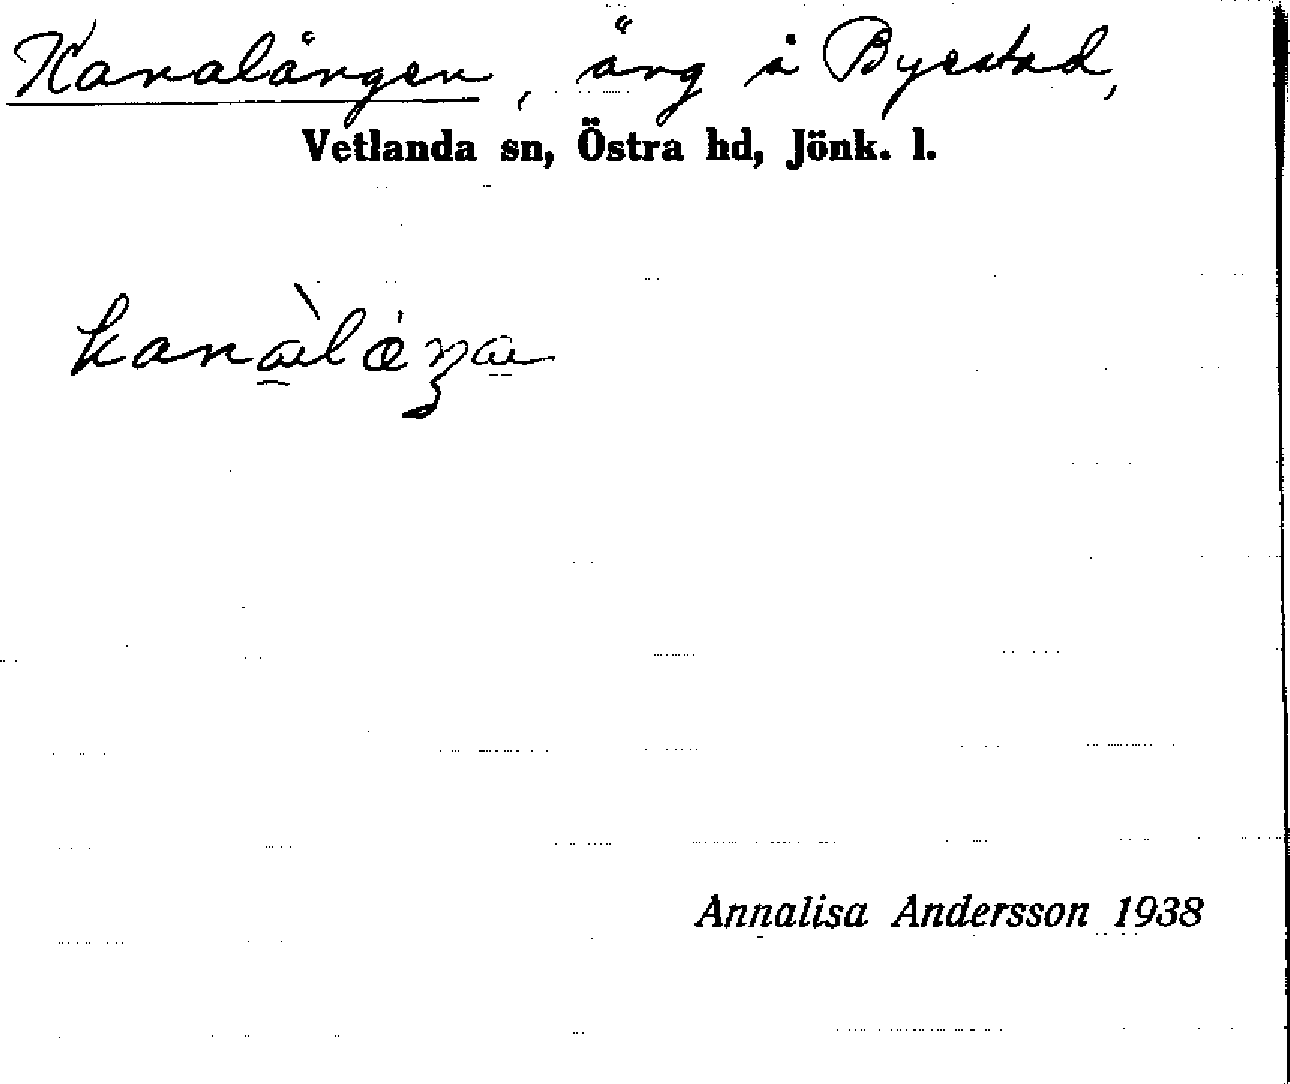 Kanalängen, äng å Byestad,
Vetlanda sn, Östra hd, Jönk. l.
Annalisa Andersson 1938